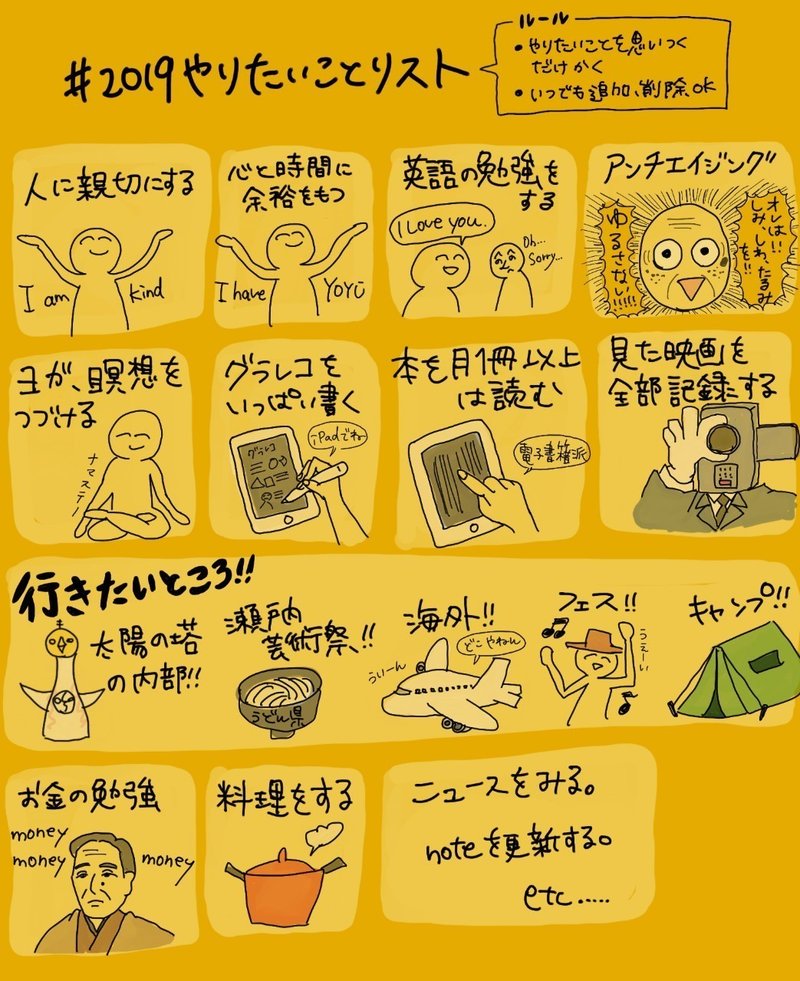 #2019やりたいことリスト
ルール
・やりたいことを思いつく
だけかく
・いつでも追加、削除OK
人に親切にする
I am kind
心と時間に
余裕をもつ
I have YOYŪ
英語の勉強を
する
I Love you.
Oh...
Sorry...
アンチエイジング
オレは!!
しみ、しわ、たるみ
を!!
ゆるさない!!!!!
ヨガ、瞑想を
つづける
ナマステ〜
グラレコを
いっぱい書く
iPadでね
グラレコ
本を月1冊以上
は読む
電子書籍派
見た映画を
全部記録する
行きたいところ!!
太陽の塔
の内部!!
瀬戸内
芸術祭!!
うどん県
海外!!
どこやねん
うぃーん
フェス!!
うぇーい
キャンプ!!
お金の勉強
money
money
money
料理をする
ニュースをみる。
noteを更新する。
etc.....